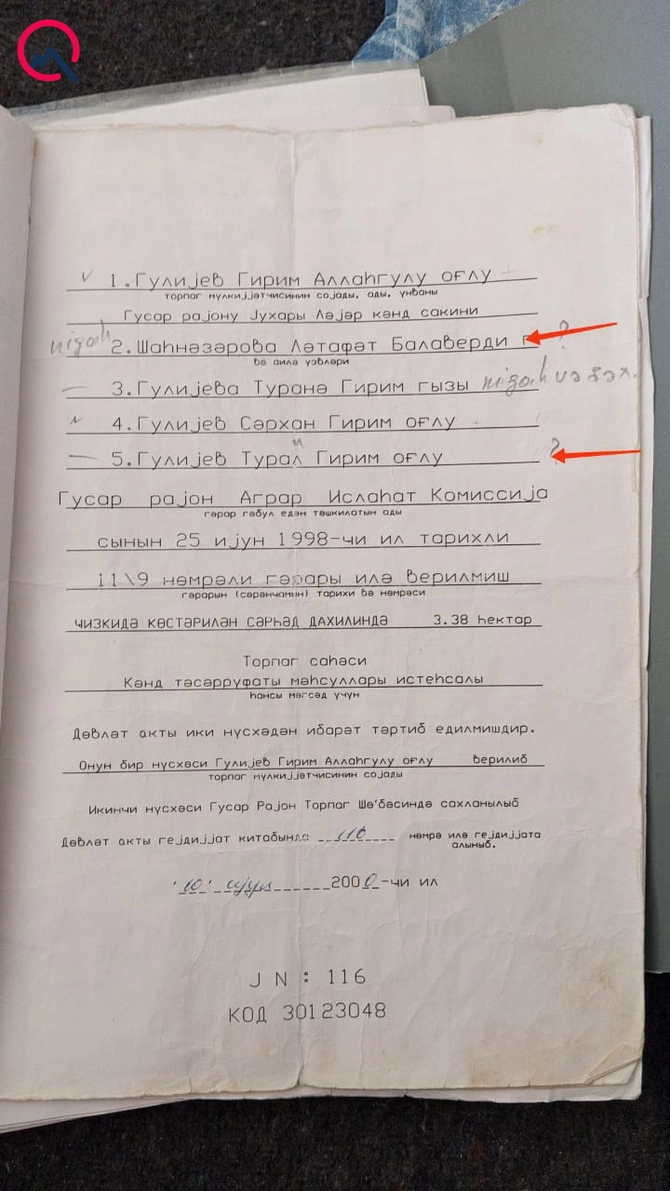 1.Гулијев Гирим Аллаһгулу оғлу
торпаг мүлкијјәтчисинин сојады, ады, үнваны
Гусар рајону Јухары Ләјәр кәнд сакини
nigah 2.Шаһнәзәрова Ләтафәт Балаверди г ?
вә аилә үзвләри
3.Гулијева Туранә Гирим гызы nigah və şəx.
4.Гулијев Сәрхан Гирим оғлу
5.Гулијев Турал Гирим оғлу ?
Гусар рајон Аграр Ислаһат Комиссија
гәрар гәбул едән тәшкилатын ады
сынын 25 ијун 1998-чи ил тарихли
11\9 нөмрәли гәрары илә верилмиш
гәрарын (сәрәнчамын) тарихи вә нөмрәси
чизкидә көстәрилән сәрһәд дахилиндә 3.38 һектар
Торпаг саһәси
Кәнд тәсәррүфаты мәһсуллары истеһсалы
һансы мәгсәд үчүн
Дөвләт акты ики нүсхәдән ибарәт тәртиб едилмишдир.
Онун бир нүсхәси Гулијев Гирим Аллаһгулу оғлу верилиб
торпаг мүлкијјәтчисинин сојады
Икинчи нүсхәси Гусар Рајон Торпаг Шө'бәсиндә сахланылыб
Дөвләт акты гејдијјат китабында 116 нөмрә илә гејдијјата
алыныб.
"10" ијул 2000-чи ил
J N : 116
КОД 30123048